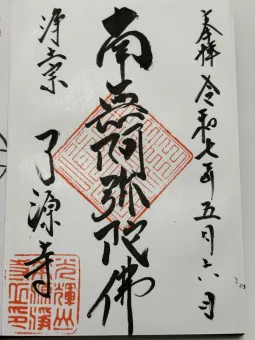 奉拝 令和七年五月六日
南無阿弥陀佛
浄土宗
了源寺